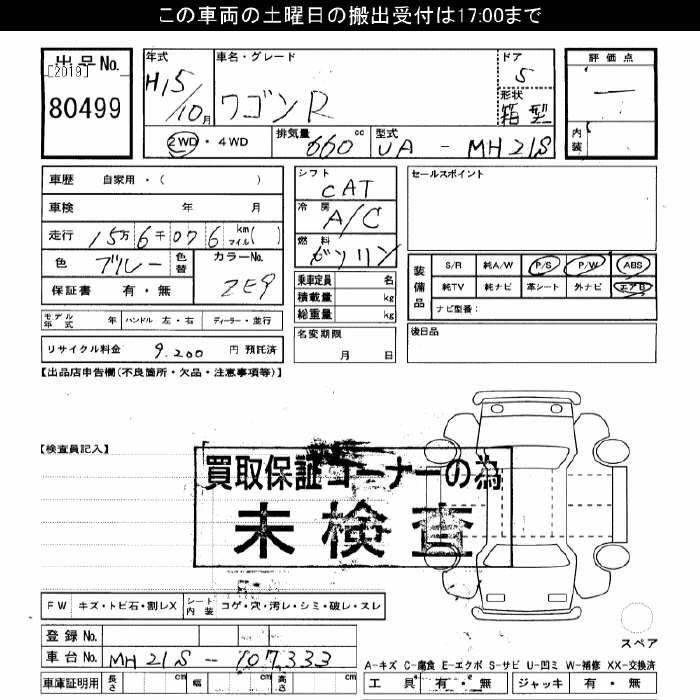 この車両の土曜日の搬出受付は17:00まで
出品No.
[2019]
80499
年式 H15/10月
車名・グレード ワゴンR
ドア 5
形状 箱型
2WD・4WD
排気量 660 cc
型式 UA - MH21S
評価点 —
内装
車歴 自家用・( )
車検 年 月
走行 15万6千076 km マイル( )
色 ブルー 色替 カラーNo. ZE9
保証書 有・無
シフト CAT
冷房 A/C
燃料 ガソリン
乗車定員 名
積載量 kg
総重量 kg
セールスポイント
装備品
S/R 純A/W P/S P/W ABS
純TV 純ナビ 革シート 外ナビ エアB
ナビ型番:
モデル年式 年 ハンドル 左・右 ディーラー・並行
名変期限 月 日
後日品
リサイクル料金 9,200 円 預託済
【出品店申告欄(不良箇所・欠品・注意事項等)】
【検査員記入】
買取保証コーナーの為
未検査
FW キズ・トビ石・割レX シート内装 コゲ・穴・汚レ・シミ・破レ・スレ
登録No.
車台No. MH21S-107333
スペア
A-キズ C-腐食 E-エクボ S-サビ U-凹ミ W-補修 XX-交換済
車庫証明用 長さ cm 幅 cm 高さ cm
工具 有・無 ジャッキ 有・無